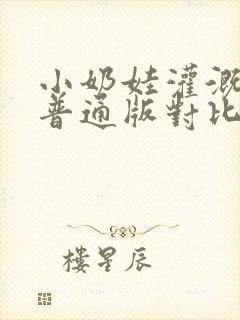 小奶娃灌溉
普通版對比
樓星辰